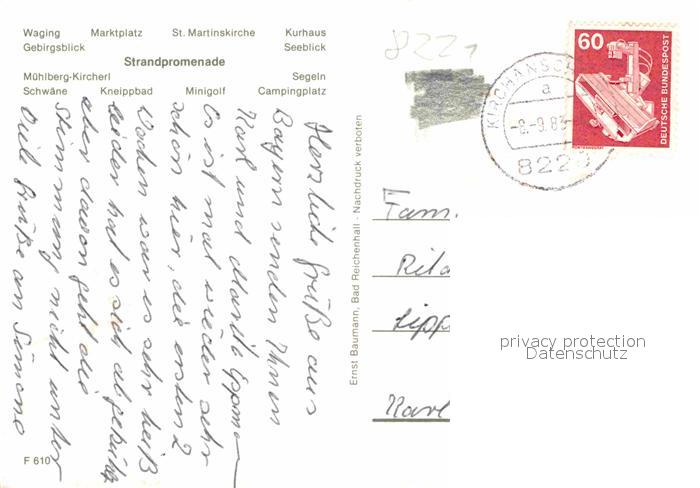 Waging Marktplatz St. Martinskirche Kurhaus
Gebirgsblick Seeblick
Strandpromenade
Mühlberg-Kircherl Segeln
Schwäne Kneippbad Minigolf Campingplatz
8221
Herzliche Grüße aus
Bayern senden Ihnen
Karl und
Es ist mal wieder sehr
schön hier, die ersten 2
Wochen war es sehr heiß
leider hat es sich abgekühlt
aber davon geht die
Stimmung nicht unter
Viele Grüße an Simone
F 610
Ernst Baumann, Bad Reichenhall - Nachdruck verboten
KIRCHANSCH
a
-8.-9.83
822
60
DEUTSCHE BUNDESPOST
Fam.
Rita
Lipp
Karl
privacy protection
Datenschutz